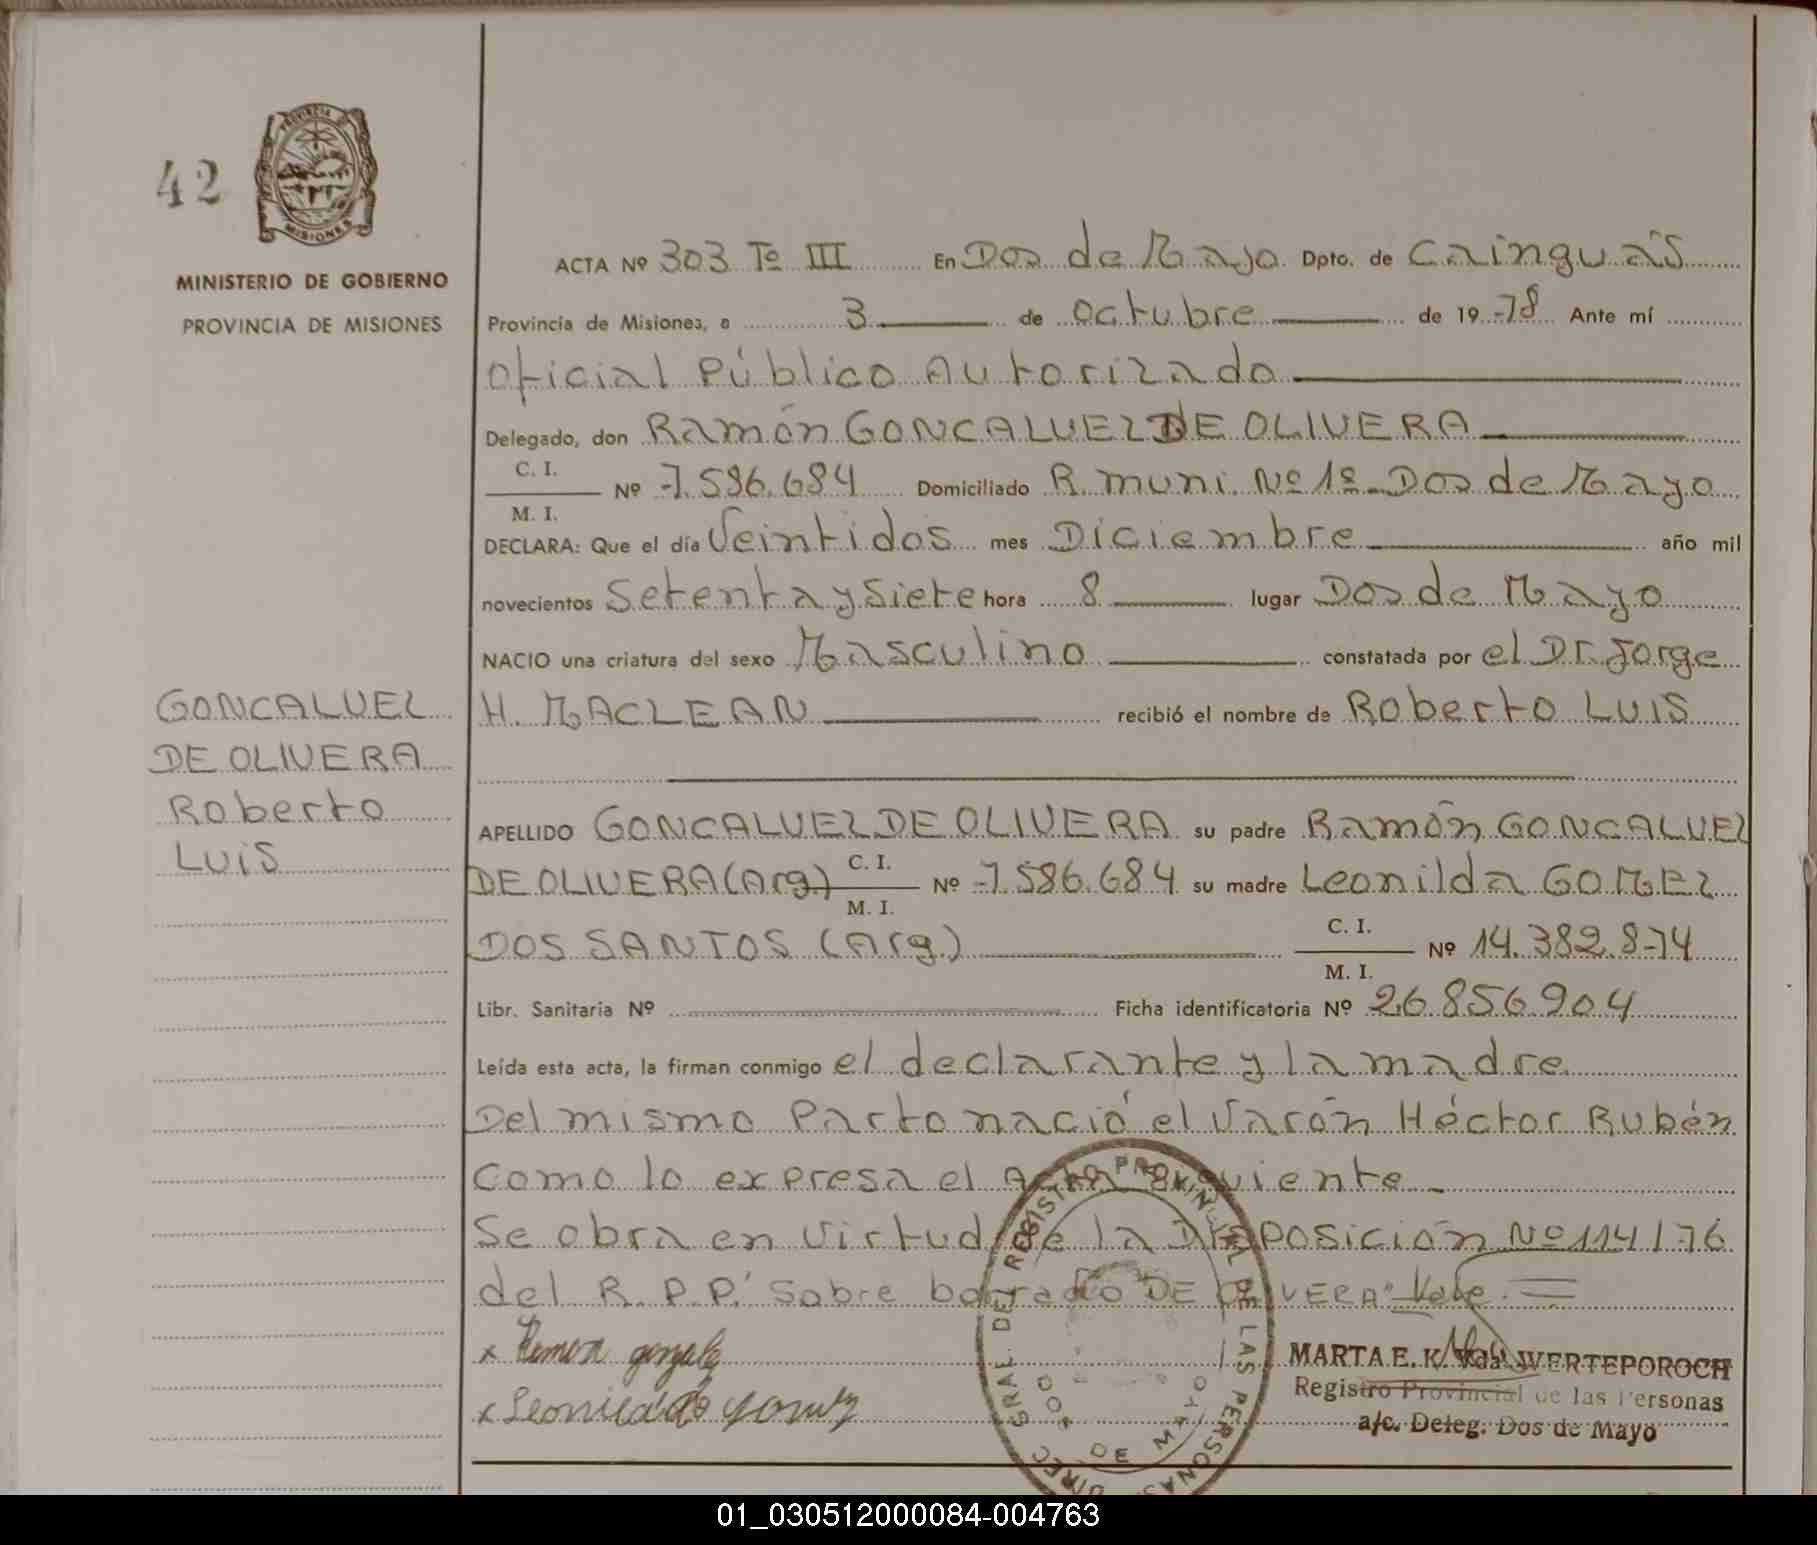 42
PROVINCIA DE
MISIONES
MINISTERIO DE GOBIERNO
PROVINCIA DE MISIONES
ACTA Nº 303 Tº III En Dos de Mayo Dpto. de Cainguás
Provincia de Misiones, a 3 de octubre de 1978 Ante mí
Oficial Público Autorizado
Delegado, don Ramón GONCALVEZ DE OLIVERA
C. I.
Nº 7.586.684 Domiciliado R. muni. Nº 1º - Dos de Mayo
M. I.
DECLARA: Que el día Veintidos mes Diciembre año mil
novecientos Setenta y Siete hora 8 lugar Dos de Mayo
NACIO una criatura del sexo Masculino constatada por el Dr. Jorge
H. MACLEAN recibió el nombre de Roberto LUIS
GONCALVEZ
DE OLIVERA
Roberto
LUIS
APELLIDO GONCALVEZ DE OLIVERA su padre Ramón GONCALVEZ
DE OLIVERA (Arg.) C. I. Nº 7.586.684 su madre Leonilda GOMEZ
M. I.
DOS SANTOS (Arg.) C. I. Nº 14.382.874
M. I.
Libr. Sanitaria Nº Ficha identificatoria Nº 26.856.904
Leída esta acta, la firman conmigo el declarante y la madre.
Del mismo Parto nació el Varón Héctor Rubén
como lo expresa el Acta Siguiente.-
Se obra en virtud de la Disposición Nº 114/76
del R.P.P. Sobre borrado "DE OLIVERA" Vale. =
x Ramon gonzalez
x Leonilda gomez
DIREC. GRAL. DEL REGISTRO PROVINCIAL DE LAS PERSONAS
DOS DE MAYO
MARTA E. K. Vda. WERTEPOROCH
Registro Provincial de las Personas
a/c. Deleg. Dos de Mayo
01_030512000084-004763